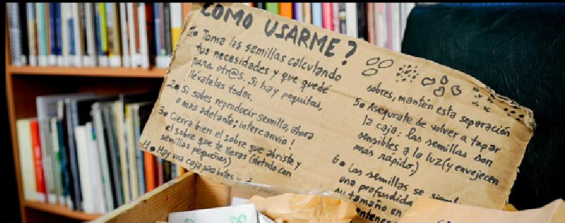 COMO USARME?
1o Toma las semillas calculando
tus necesidades y que quede
para otr@s. Si hay poquitas,
llévatelas todas
2o Si sabes reproducir semilla, ahora
o mas adelante, intercanvio!
3o Cierra bien el sobre que abriste y
el sobre que te llevas (
semillas pequeñas)
4o Hay una caja para
sobres, mantén esta separación
5o Asegurate de volver a tapar
la caja: las semillas son
sensibles a la luz (y envejecen
mas rapido)
6o Las semillas se
una profundida
su tamaño en